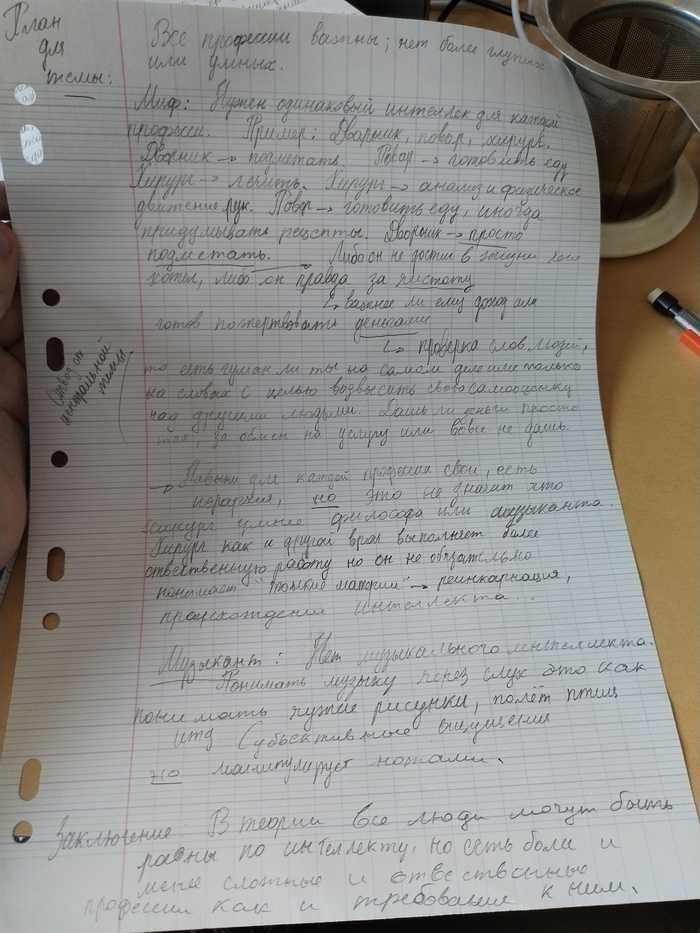 План
для
темы:
Все профессии важны; нет более глупых
или умных.
Миф: Нужен одинаковый интеллек для каждой
професси. Пример: Дворник, повар, хирург.
Дворник → подметать. Повар → готовить еду
Хирург → лечить. Хирург → анализ и физическое
движение рук. Повар → готовить еду, иногда
придумывать рецепты. Дворник → просто
подметать. Либо он не достиг в жизни чего
хотел, либо он правда за чистоту
↳ важнее ли ему доход или
готов пожертвовать деньгами
↳ проверка слов людей,
то есть гуман ли ты на самом деле или только
на словах с целью возвысить свою самооценку
над другими людьми. Дашь ли деньги просто
так, за обмен на услугу или вовсе не дашь.
Отвод от
ментальной
темы
→ Навыки для каждой профессии свои, есть
иерархия, но это не значит что
хирург умнее философа или музыканта.
Хирург как и другой врач выполняет более
отвественную работу но он не обязательно
понимает "тонкие материи" → реинкарнация,
происхождение интеллекта...
Музыкант: Нет музыкального интеллекта.
Понимать музыку через слух это как
понимать чужие рисунки, полёт птиц
итд (субъективные ощущения
но манипулирует нотами.
Заключение: В теории все люди могут быть
равны по интеллекту, но есть боли и
мене сложные и отвественные
профессии как и требования к ним.